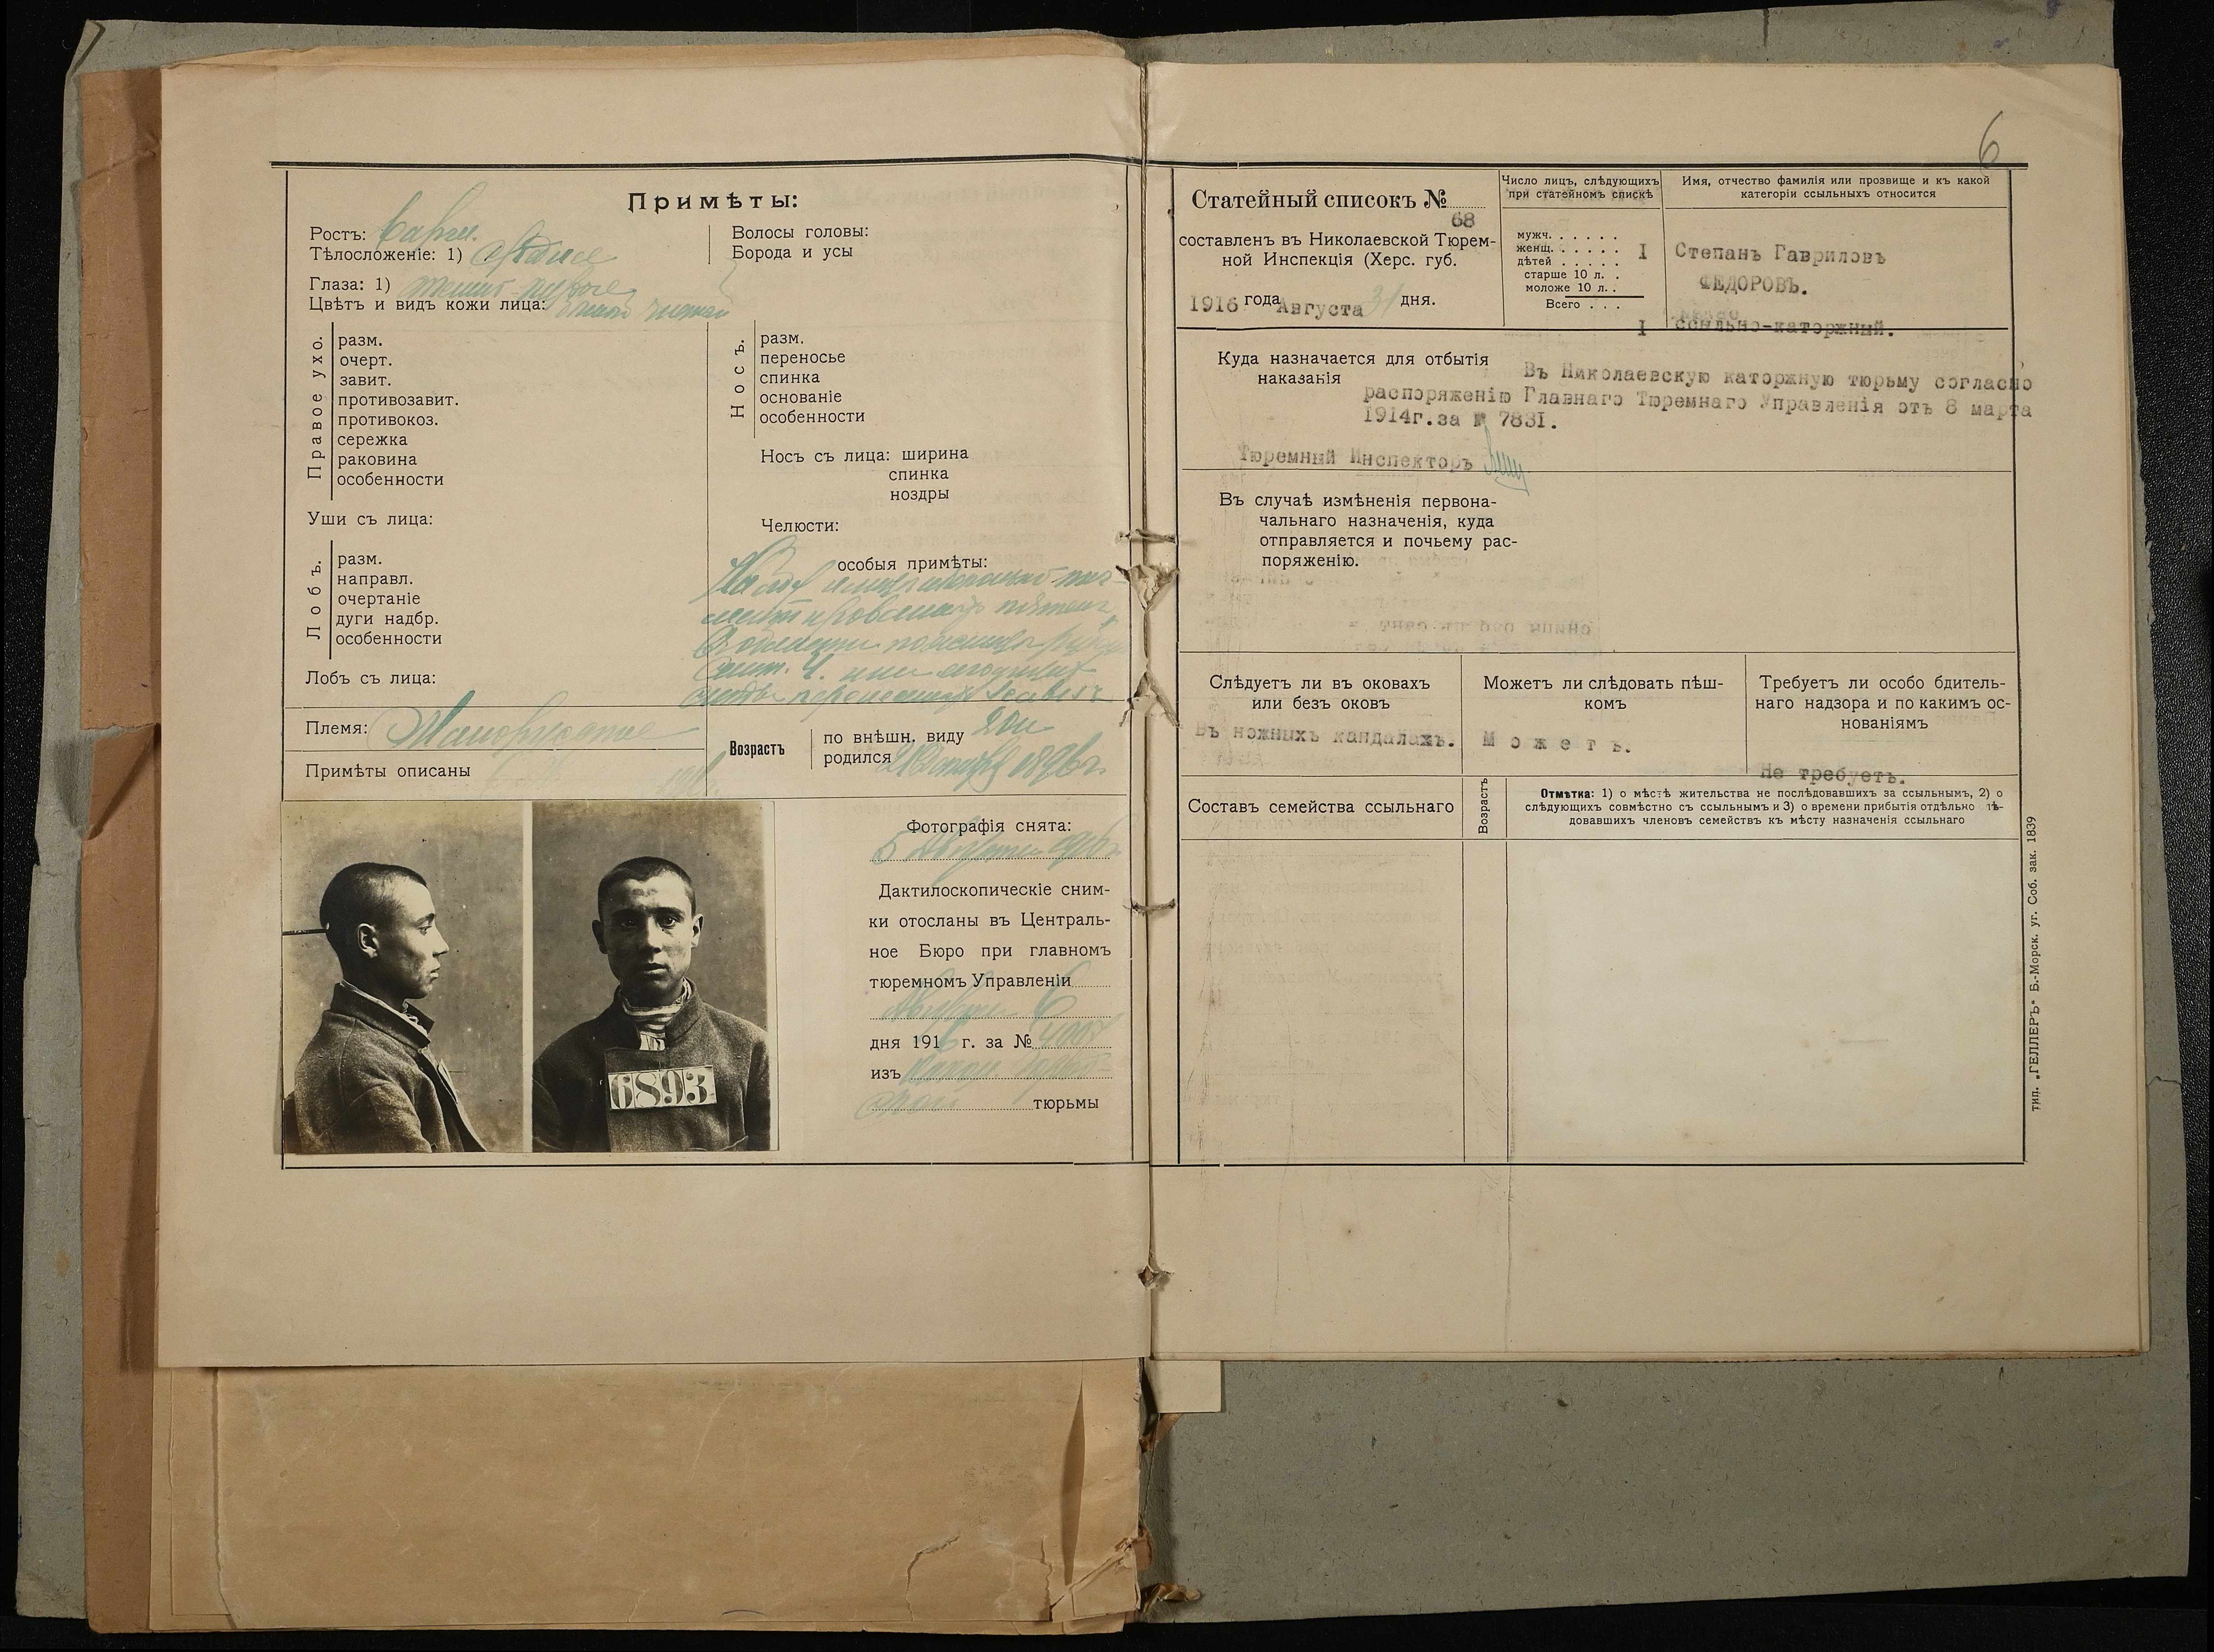 Примѣты:
Ростъ:
Тѣлосложеніе: 1)
Глаза: 1)
Цвѣтъ и видъ кожи лица:
Волосы головы:
Борода и усы
Правое ухо.
разм.
очерт.
завит.
противозавит.
противокоз.
сережка
раковина
особенности
Уши съ лица:
Лобъ.
разм.
направл.
очертаніе
дуги надбр.
особенности
Лобъ съ лица:
Носъ.
разм.
переносье
спинка
основаніе
особенности
Носъ съ лица: ширина
спинка
ноздры
Челюсти:
особыя примѣты:
Племя:
Примѣты описаны
Возрастъ
по внѣшн. виду
родился 1896г.
6893
Фотографія снята:
5 Августа 1916
Дактилоскопическіе сним-
ки отосланы въ Централь-
ное Бюро при главномъ
тюремномъ Управленіи
Августа 6
дня 1916 г. за №
изъ
тюрьмы
6
Статейный списокъ №
68
составленъ въ Николаевской Тюрем-
ной Инспекція (Херс. губ.
1916 года Августа 31 дня.
Число лицъ, слѣдующихъ
при статейномъ спискѣ
мужч. . . . . .
женщ. . . . . . I
дѣтей . . . . .
старше 10 л. .
моложе 10 л. .
Всего . . .
I
Имя, отчество фамилія или прозвище и къ какой
категоріи ссыльныхъ относится
Степанъ Гавриловъ
ФЕДОРОВЪ.
ссыльно-каторжный.
Куда назначается для отбытія
наказанія
Въ Николаевскую каторжную тюрьму согласно
распоряженію Главнаго Тюремнаго Управленія отъ 8 марта
1914г.за № 7831.
Тюремный Инспекторъ
Въ случаѣ измѣненія первона-
чальнаго назначенія, куда
отправляется и почьему рас-
поряженію.
Слѣдуетъ ли въ оковахъ
или безъ оковъ
Въ ножныхъ кандалахъ.
Можетъ ли слѣдовать пѣш-
комъ
Можетъ.
Требуетъ ли особо бдитель-
наго надзора и по какимъ ос-
нованіямъ
Не требуетъ.
Составъ семейства ссыльнаго
Возрастъ
Отмѣтка: 1) о мѣстѣ жительства не послѣдовавшихъ за ссыльнымъ, 2) о
слѣдующихъ совмѣстно съ ссыльнымъ и 3) о времени прибытія отдѣльно лѣ-
довавшихъ членовъ семействъ къ мѣсту назначенія ссыльнаго
тип. „ГЕЛЛЕРЪ" Б.-Морск. уг. Соб. зак. 1839